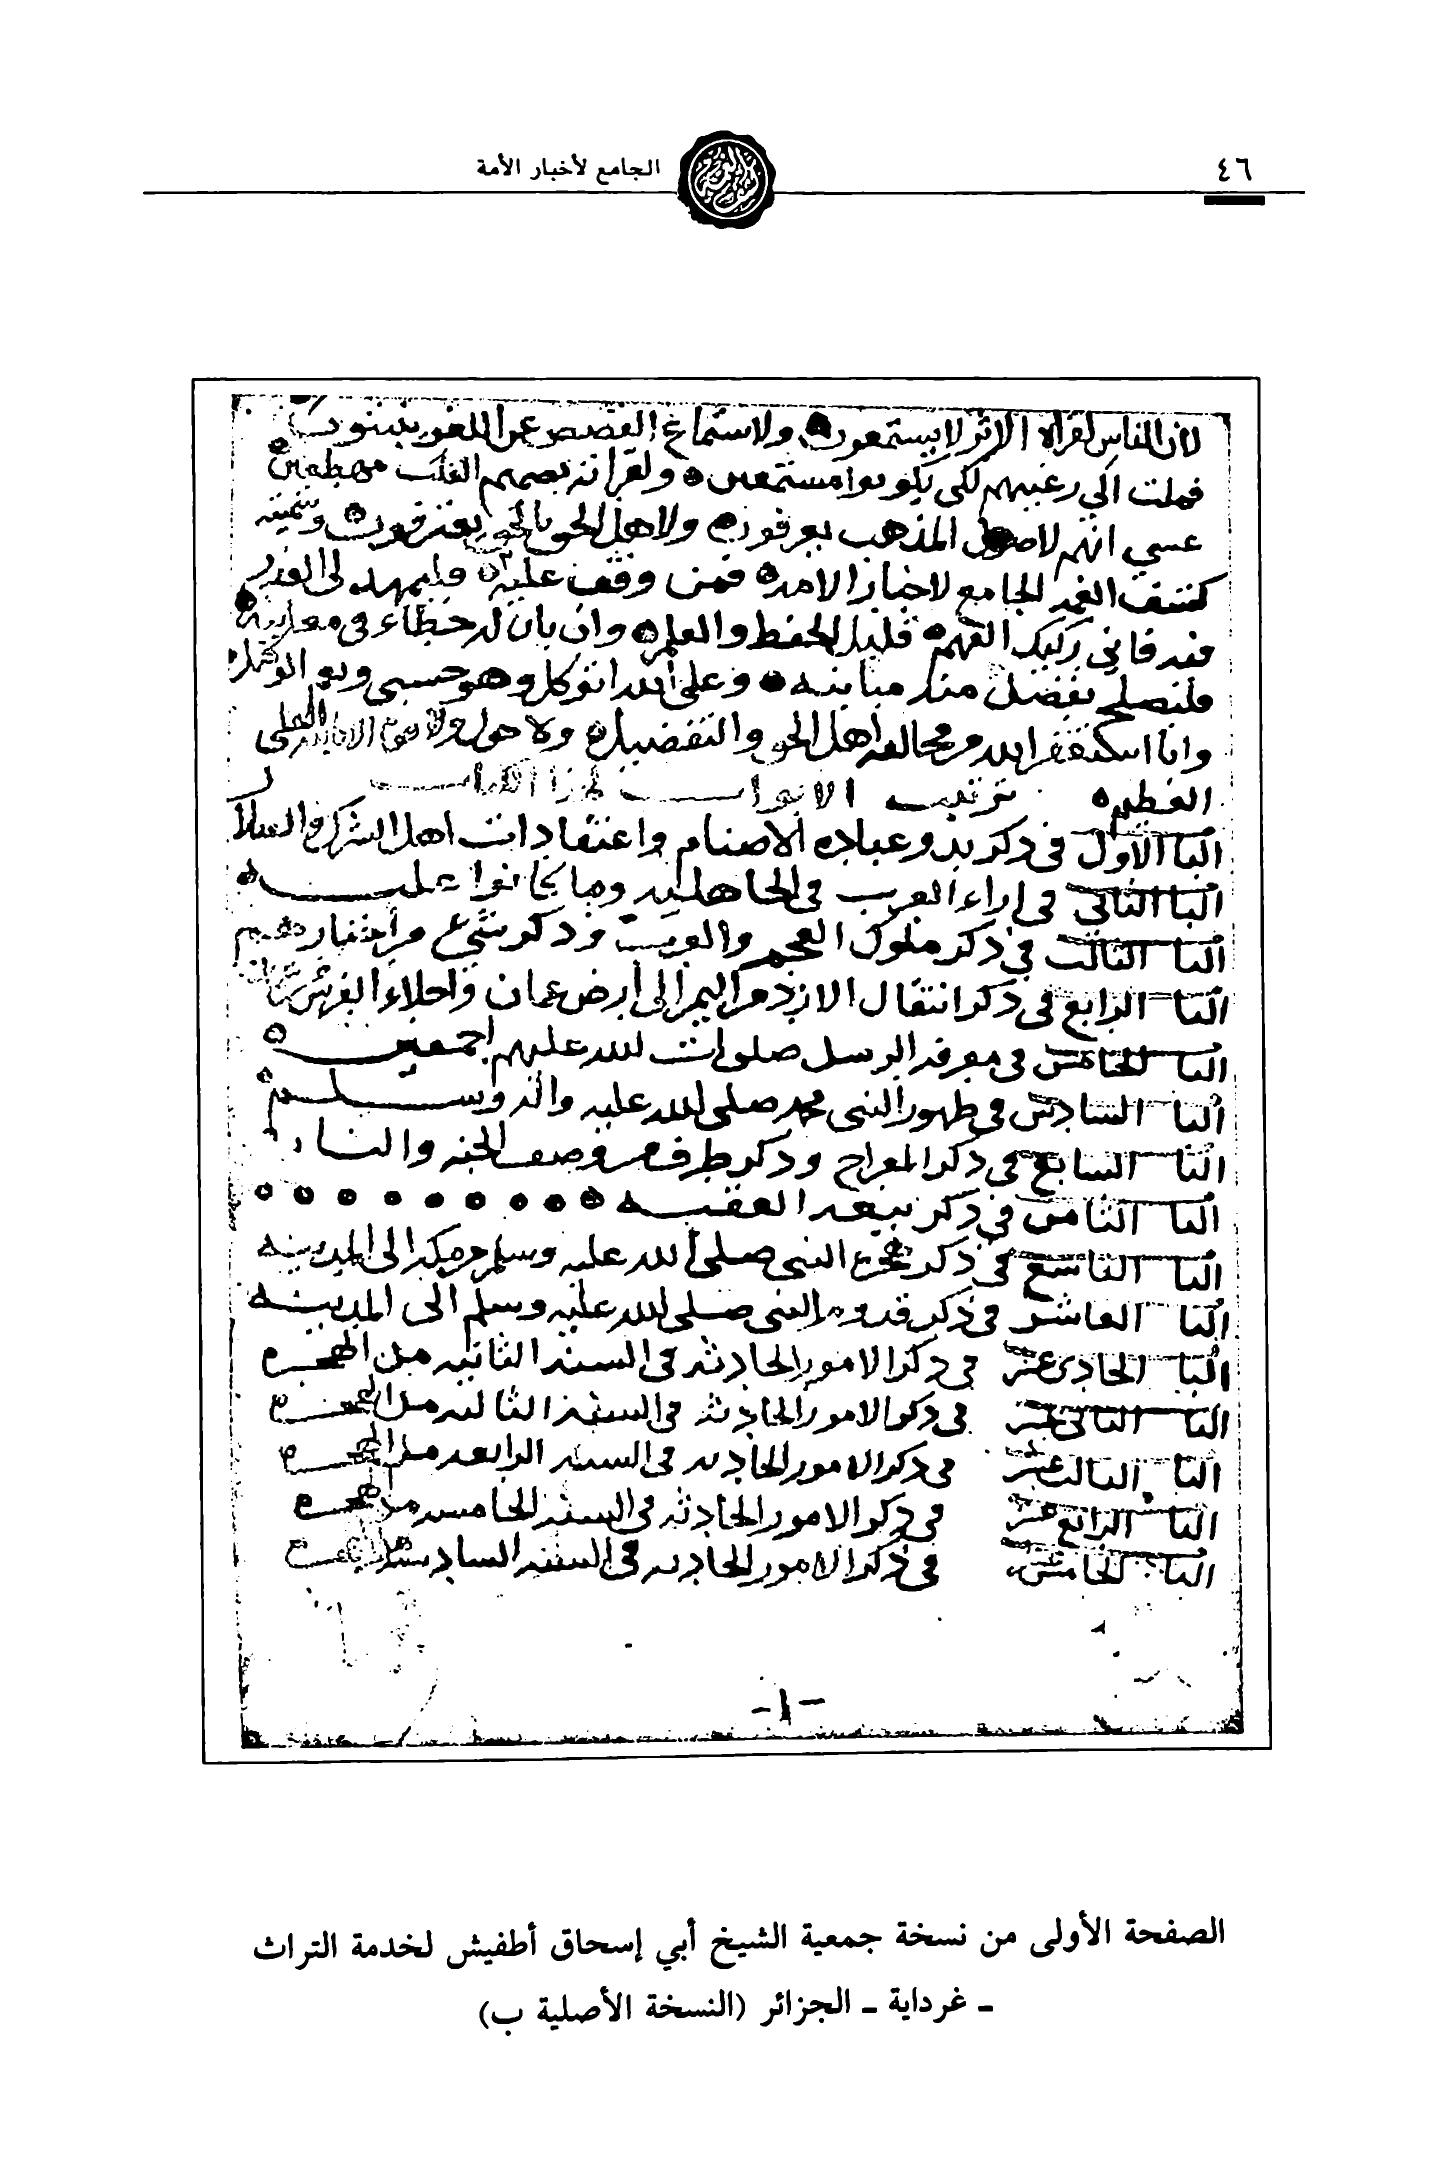 ٤٦
الجامع لأخبار الأمة
لان الناس لقراة الاثر لا يستمعون ولاستماع القصص عن اللغو ينبتون
فملت الي رغبتهم لكي يكونوا مستمعين ولقراته بصميم القلب مهطعين
عسي انهم لاصول المذهب يعرفون ولاهل الحق بالحق يعترفون وسميته
كشف الغمه الجامع لاخبار الامه فمن وقف عليه فليمهد لي العذر
فيه فاني ركيك الفهم قليل الحفظ والعلم وان بان له خطاء في معانيه
فليصلح بفضل منه مبانيه وعلى الله اتوكل وهو حسبي ونعم الوكيل
وانا استغفر الله من مخالفة اهل الحق والتفضيل ولا حول ولا قوة الا بالله العلي
العظيم ترتيب الابواب لهذا الكتاب
البا الاول في ذكر بدو عباده الاصنام واعتقادات اهل الشرك والضلا
البا الثاني في اراء العرب في الجاهليه وما كانوا عليه
البا الثالث في ذكر ملوك العجم والعرب وذكر شيء من اخبارهم
البا الرابع في ذكر انتقال الازد من اليمن الى أرض عمان واجلاء الفرس
البا الخامس في معرفه الرسل صلوات الله عليهم اجمعين
البا السادس في ظهور النبي محمد صلى الله عليه واله وسلم
البا السابع في ذكر المعراج وذكر طرف من وصف الجنه والنار
البا الثامن في ذكر بيعه العقبه
البا التاسع في ذكر مخرج النبي صلى الله عليه وسلم من مكه الى المدينه
البا العاشر في ذكر قدوم النبي صلى الله عليه وسلم الى المدينه
البا الحادي عشر في ذكر الامور الحادثه في السنه الثانيه من الهجره
البا الثاني عشر في ذكر الامور الحادثه في السنه الثالثه من الهجره
البا الثالث عشر في ذكر الامور الحادثه في السنه الرابعه من الهجره
البا الرابع عشر في ذكر الامور الحادثه في السنه الخامسه من الهجره
البا الخامس عشر في ذكر الامور الحادثه في السنه السادسه من الهجره
-١-
الصفحة الأولى من نسخة جمعية الشيخ أبي إسحاق أطفيش لخدمة التراث
ـ غرداية ـ الجزائر (النسخة الأصلية ب)